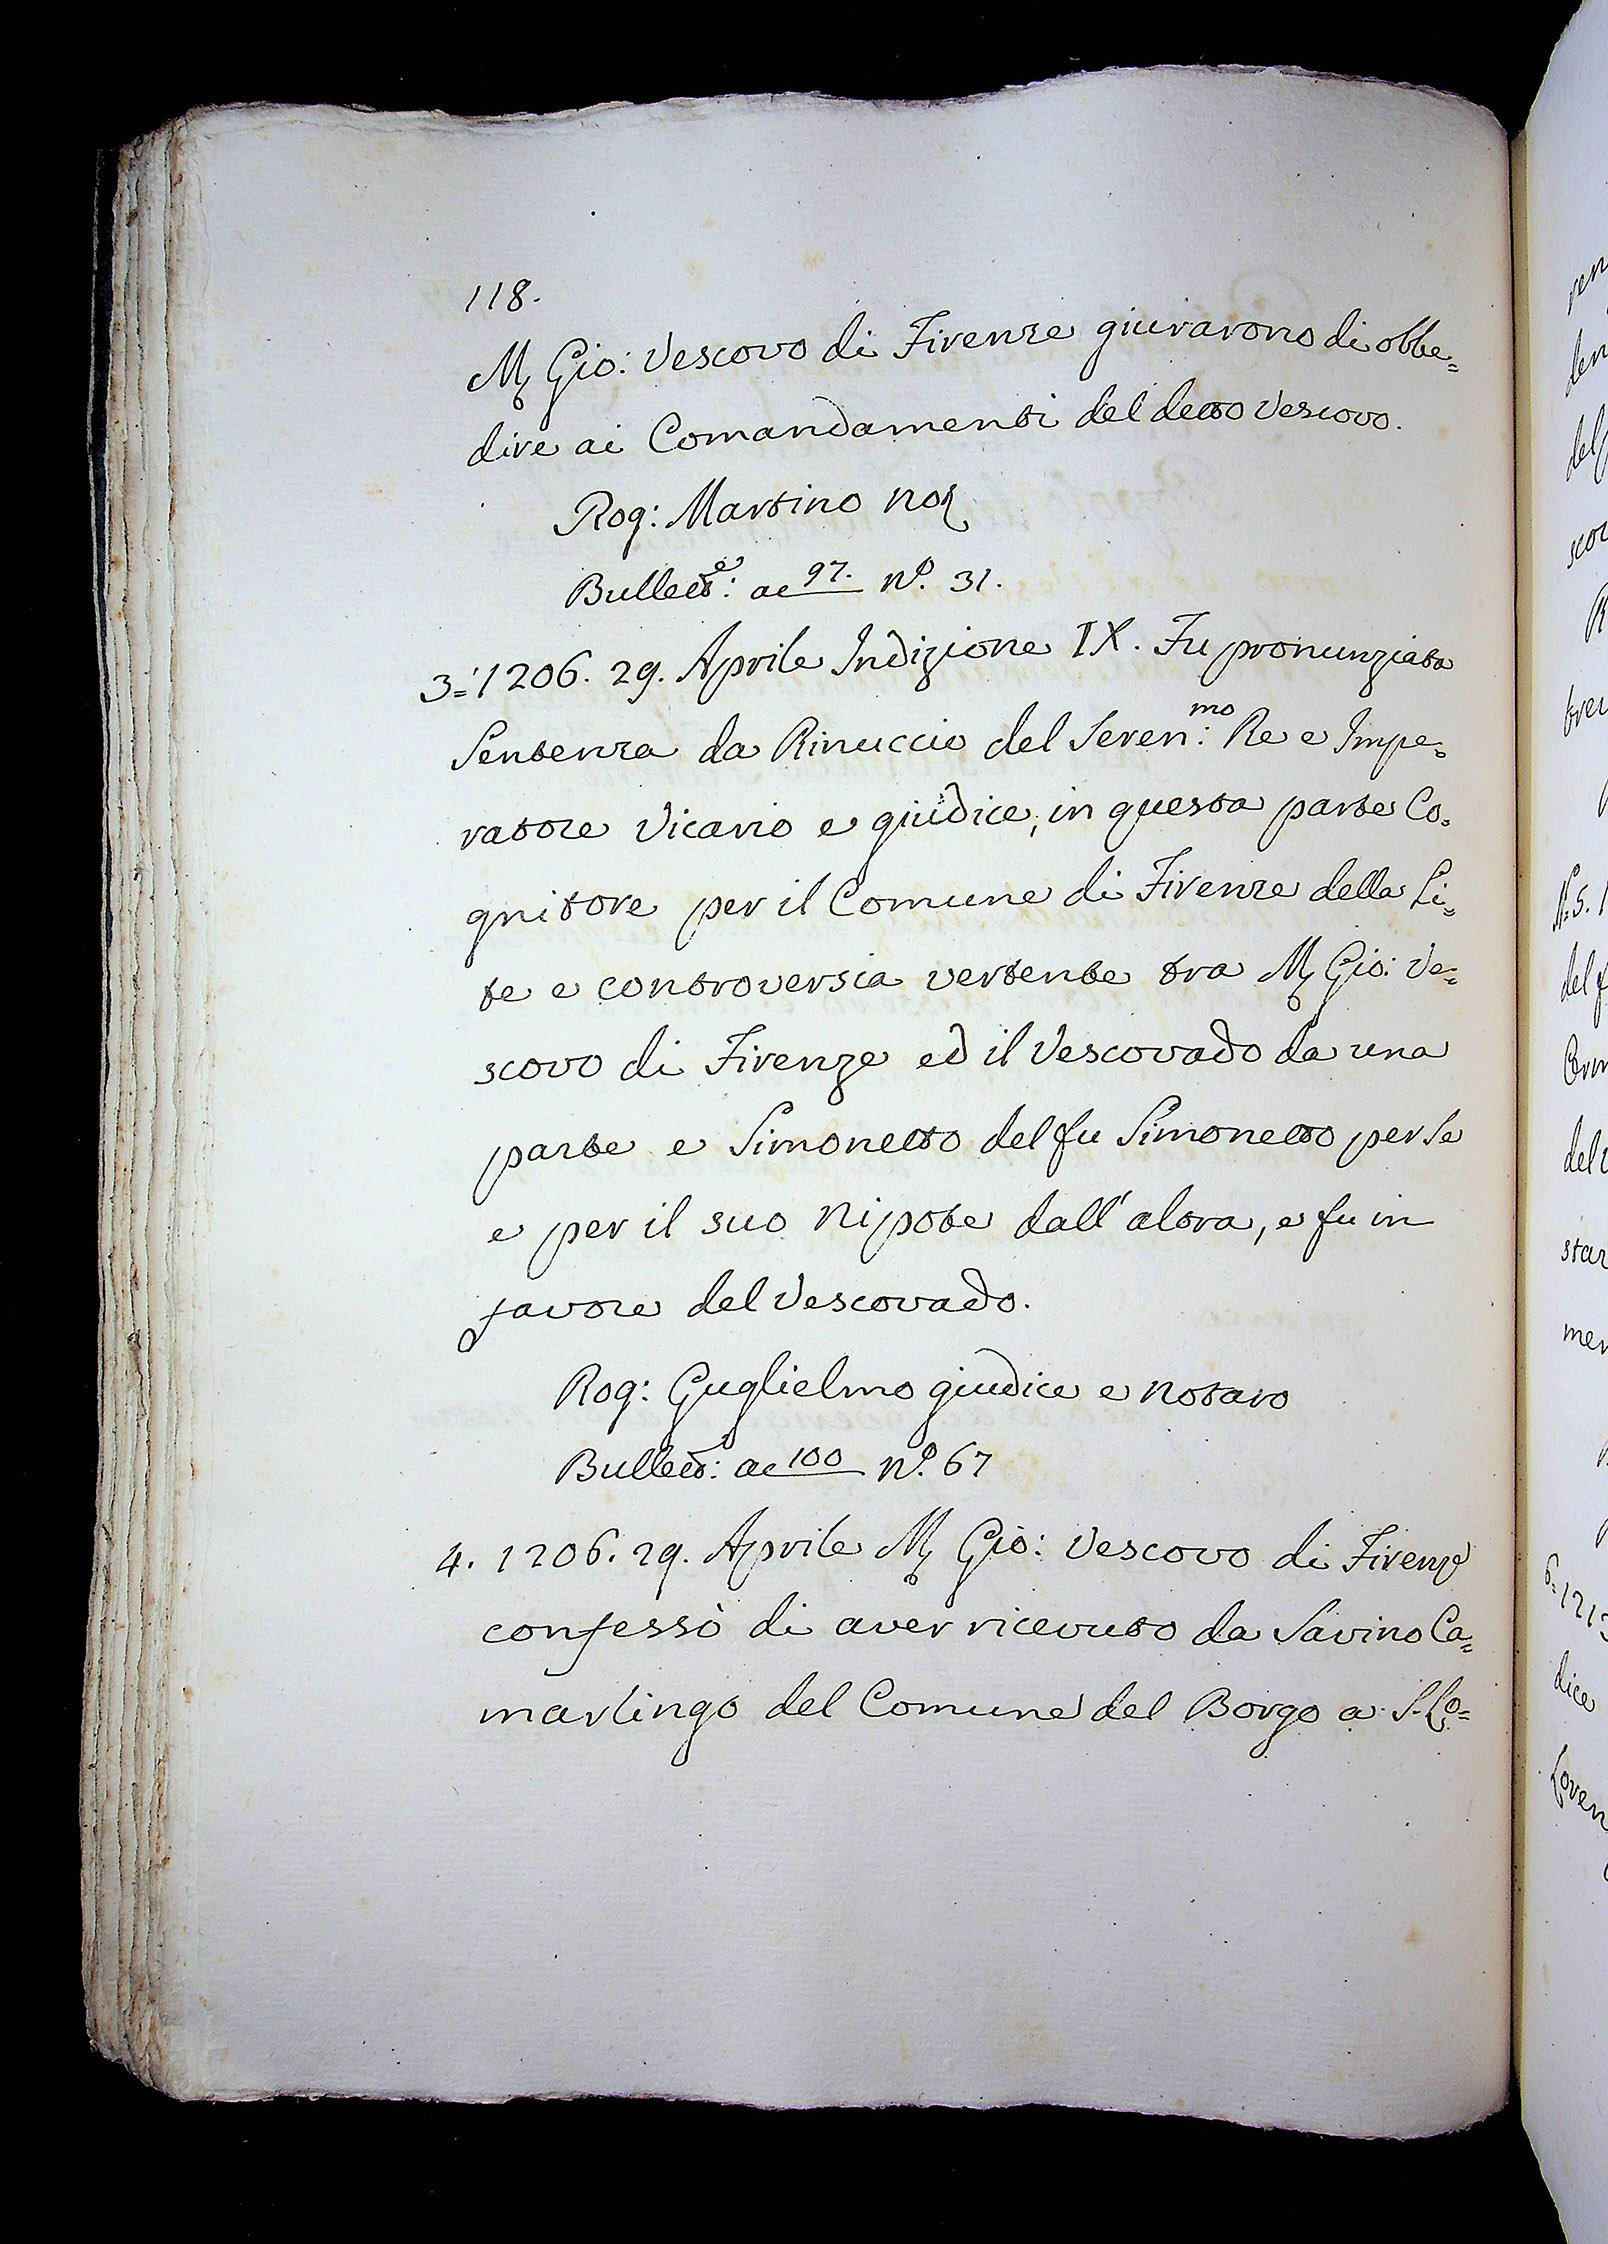 118.
M. Gio: Vescovo di Firenze giurarono di obbe=
dire ai Comandamenti del detto Vescovo.
Rog: Martino not
Bullett: ac 97. N.º 31.
3= 1206. 29. Aprile Indizione IX. Fu pronunziata
Sentenza da Rinuccio del Seren:mo Re e Impe=
ratore Vicario e giudice, in questa parte Co=
gnitore per il Comune di Firenze della Li=
te e controversia vertente tra M. Gio: Ve=
scovo di Firenze ed il Vescovado da una
parte e Simonetto del fu Simonetto per se
e per il suo Nipote dall' altra, e fu in
favore del Vescovado.
Rog: Guglielmo giudice e notaro
Bullett: ac 100 N.º 67
4. 1206. 29. Aprile M. Gio: Vescovo di Firenze
confessò di aver ricevuto da Savino Ca=
marlingo del Comune del Borgo a S. Lo=